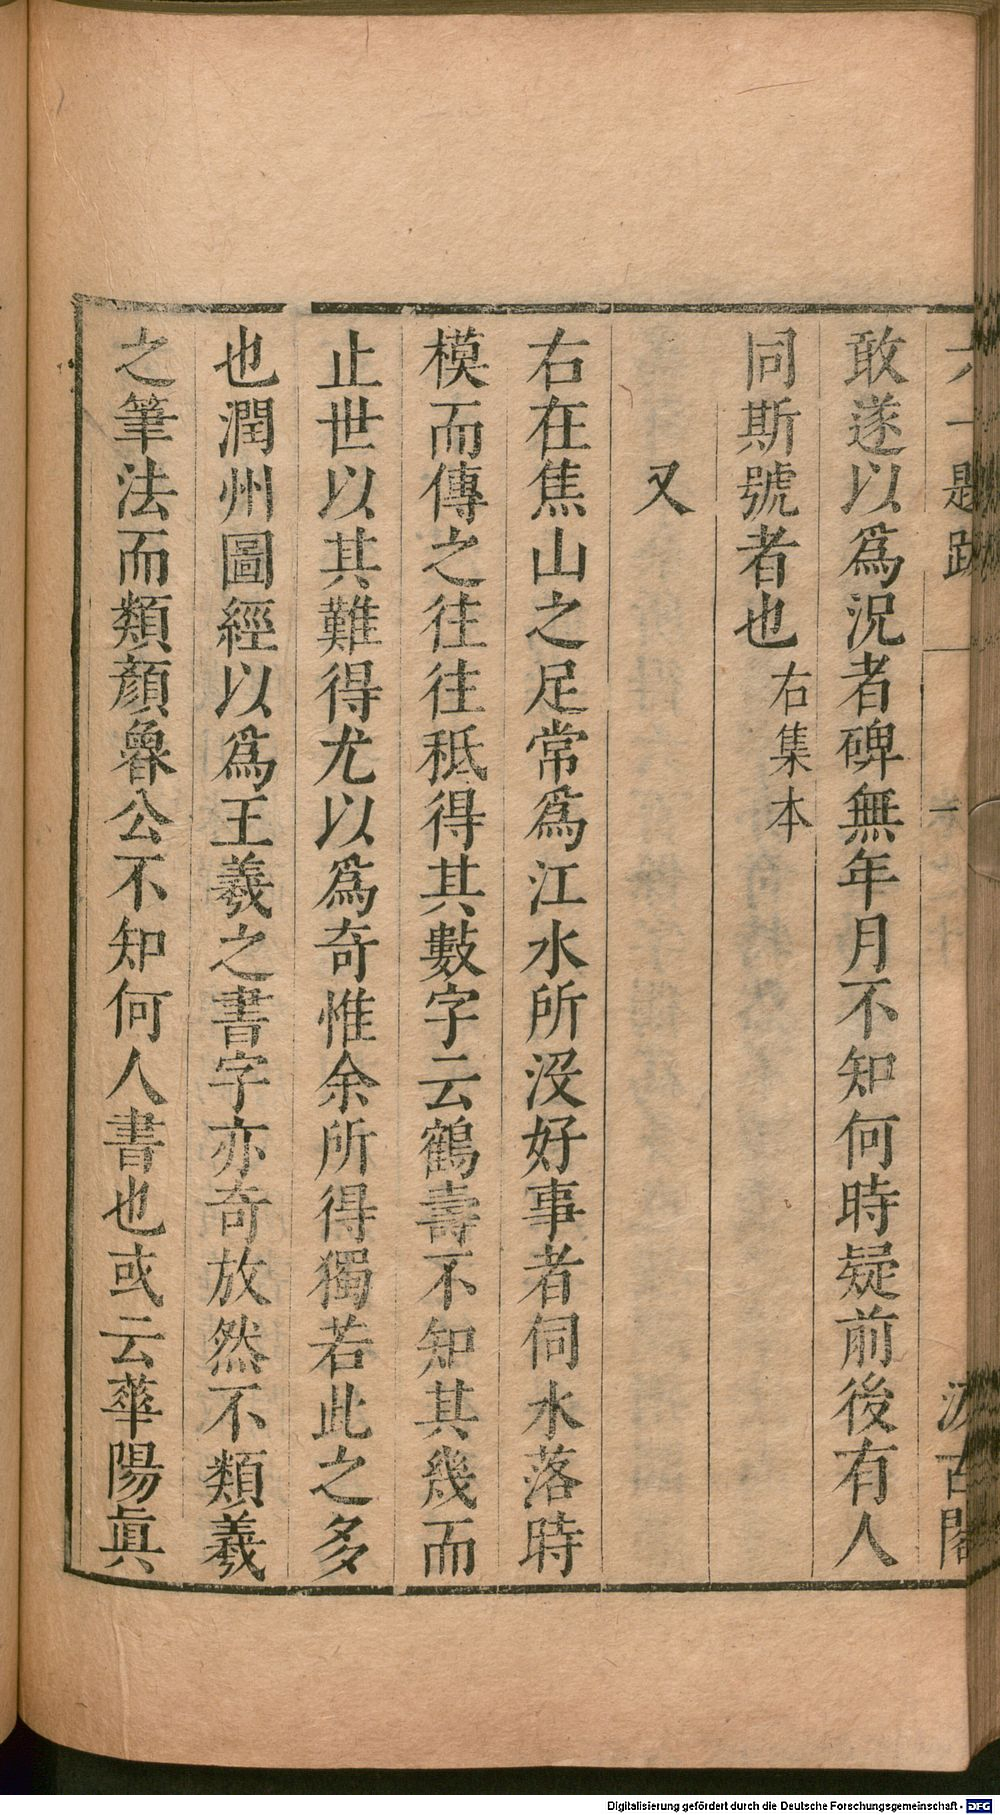 六一題跋
卷之十
汲古閣
敢遂以爲況者碑無年月不知何時疑前後有人
同斯號者也右集本
又
右在焦山之足常爲江水所沒好事者伺水落時
模而傳之往往秪得其數字云鶴壽不知其幾而
止世以其難得尤以爲奇惟余所得獨若此之多
也潤州圖經以爲王羲之書字亦奇放然不類羲
之筆法而類顏魯公不知何人書也或云華陽眞
Digitalisierung gefördert durch die Deutsche Forschungsgemeinschaft - DFG